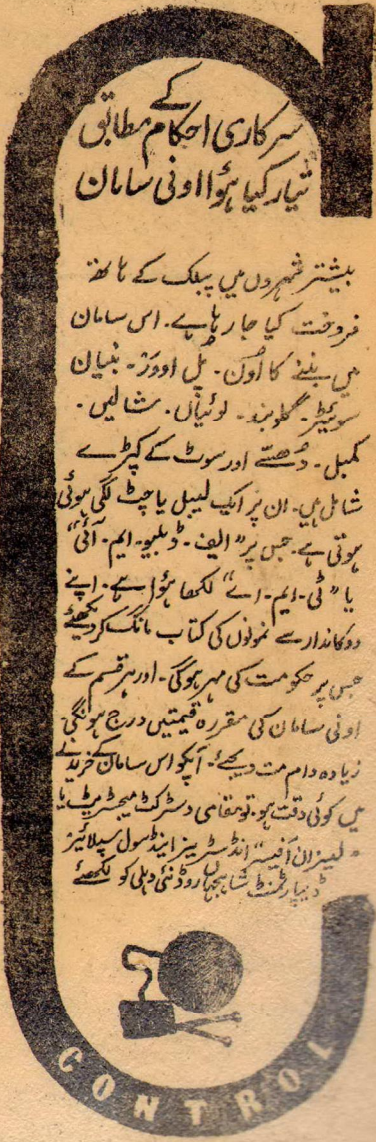 سرکاری احکام کے مطابق
تیار کیا ہؤا اونی سامان
بیشتر شہروں میں پبلک کے ہاتھ
فروخت کیا جا رہا ہے۔ اس سامان
میں بننے کا اُون۔ پل اوورَ۔ بنیان
سویٹر۔ گلوبند۔ لوئیاں۔ شالیں۔
کمبل۔ دُھسّے اور سوٹ کے کپڑے
شامل ہیں۔ ان پر ایک لیبل یا چٹ لگی ہوئی
ہوتی ہے۔ جس پر "ایف۔ ڈبلیو۔ ایم۔ آئی"
یا "ٹی۔ ایم۔ اے" لکھا ہؤا ہے۔ اپنے
دوکاندار سے نمونوں کی کتاب مانگ کر دیکھئے
جس پر حکومت کی مہر ہوگی۔ اور ہر قسم کے
اونی سامان کی مقررہ قیمتیں درج ہونگی
زیادہ دام مت دیجئے۔ آپکو اس سامان کے خریدنے
میں کوئی دقت ہو۔ تو مقامی دسٹرکٹ میجسٹریٹ یا
لیزان آفیسر انڈسٹریز اینڈ سول سپلائیز
ڈیپارٹمنٹ شاہجہاں روڈ نئی دہلی کو لکھئے
CONTROL